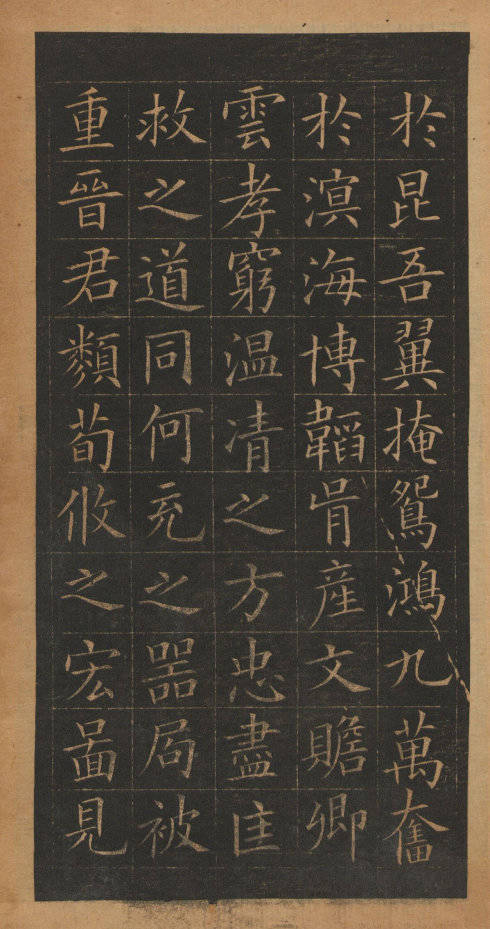 於昆吾翼掩鴛鴻九萬奮
於溟海博韜產文贍卿
雲孝窮温凊之方忠盡匡
救之道同何充之器局被
重晉君類荀攸之宏啚見